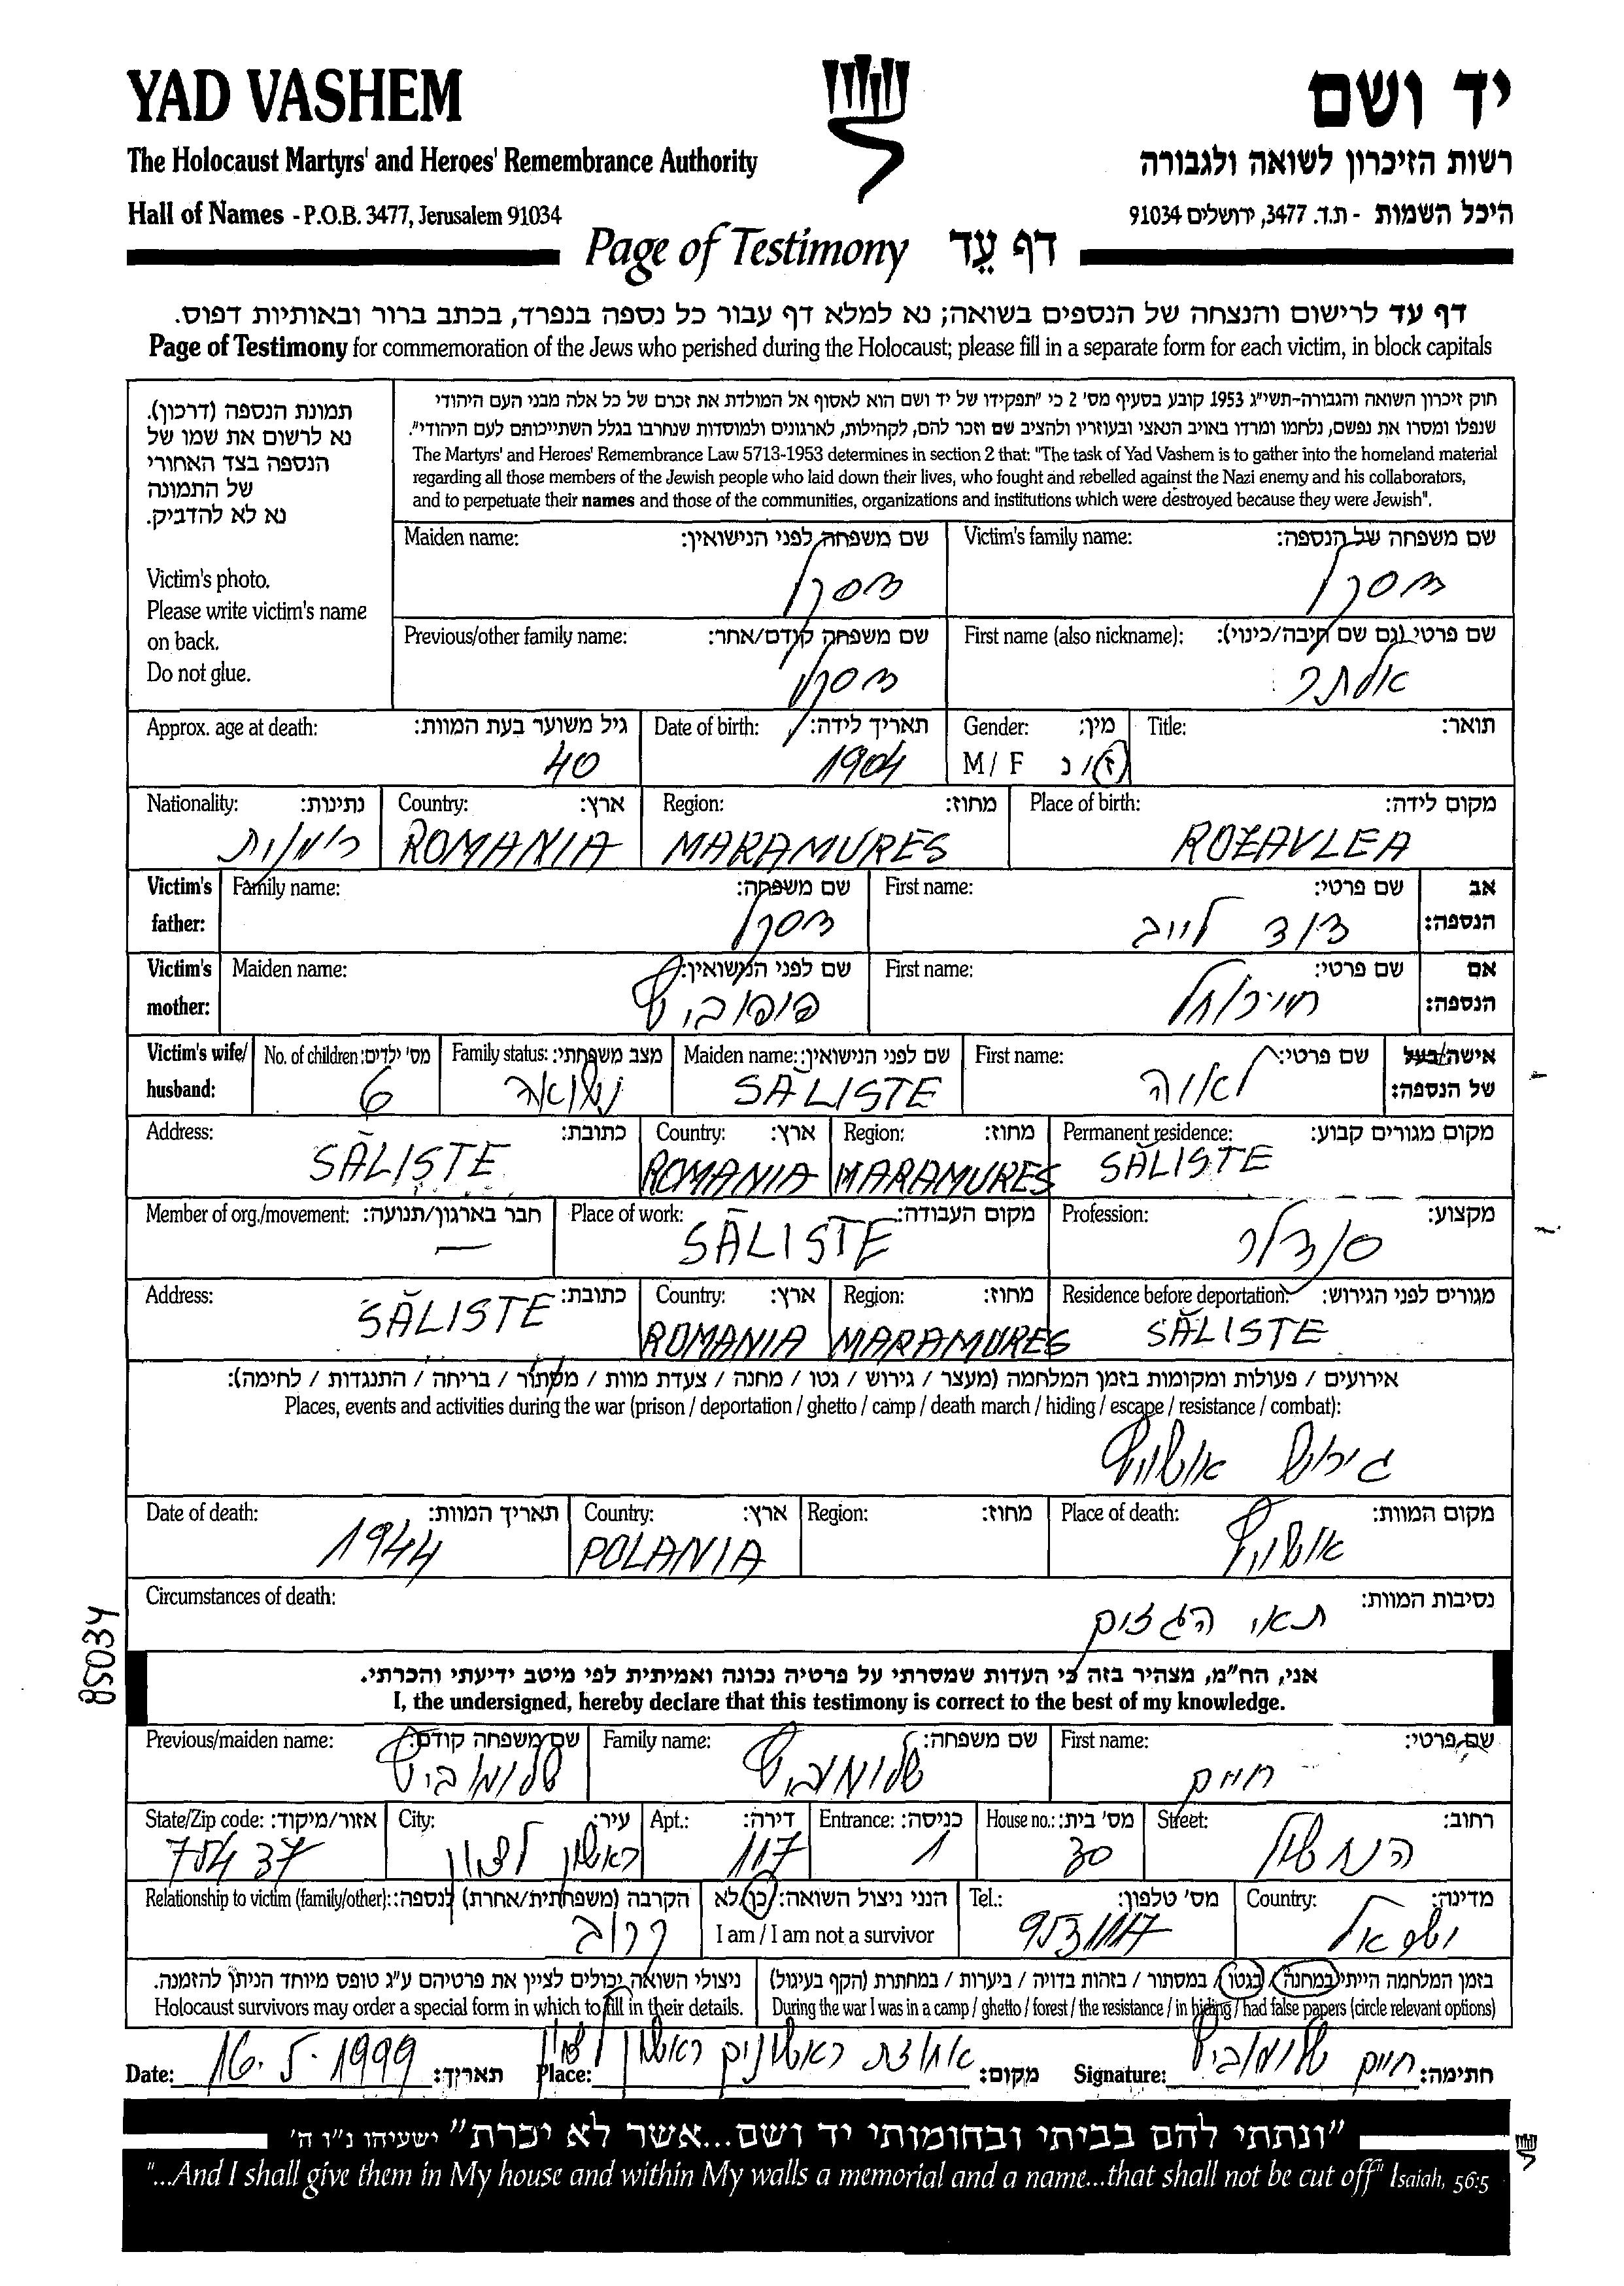 YAD VASHEM
יד ושם
The Holocaust Martyrs' and Heroes' Remembrance Authority
רשות הזיכרון לשואה ולגבורה
Hall of Names - P.O.B. 3477, Jerusalem 91034
היכל השמות - ת.ד. 3477, ירושלים 91034
Page of Testimony דף עֵד
דף עד לרישום והנצחה של הנספים בשואה; נא למלא דף עבור כל נספה בנפרד, בכתב ברור ובאותיות דפוס.
Page of Testimony for commemoration of the Jews who perished during the Holocaust; please fill in a separate form for each victim, in block capitals
תמונת הנספה (דרכון).
נא לרשום את שמו של
הנספה בצד האחורי
של התמונה
נא לא להדביק.
Victim's photo.
Please write victim's name
on back.
Do not glue.
חוק זיכרון השואה והגבורה-תשי"ג 1953 קובע בסעיף מס' 2 כי "תפקידו של יד ושם הוא לאסוף אל המולדת את זכרם של כל אלה מבני העם היהודי
שנפלו ומסרו את נפשם, נלחמו ומרדו באויב הנאצי ובעוזריו ולהציב שם וזכר להם, לקהילות, לארגונים ולמוסדות שנחרבו בגלל השתייכותם לעם היהודי".
The Martyrs' and Heroes' Remembrance Law 5713-1953 determines in section 2 that: "The task of Yad Vashem is to gather into the homeland material
regarding all those members of the Jewish people who laid down their lives, who fought and rebelled against the Nazi enemy and his collaborators,
and to perpetuate their names and those of the communities, organizations and institutions which were destroyed because they were Jewish".
Victim's family name: שם משפחה של הנספה:
Maiden name: שם משפחה לפני הנישואין:
First name (also nickname): שם פרטי (גם שם חיבה/כינוי):
Previous/other family name: שם משפחה קודם/אחר:
אלתר
Title: תואר:
Gender: מין:
M / F ז / נ
Date of birth: תאריך לידה:
1904
Approx. age at death: גיל משוער בעת המוות:
40
Place of birth: מקום לידה:
ROZAVLEA
Region: מחוז:
MARAMURES
Country: ארץ:
ROMANIA
Nationality: נתינות:
Victim's father: אב הנספה:
First name: שם פרטי:
דוד לייב
Family name: שם משפחה:
Victim's mother: אם הנספה:
First name: שם פרטי:
Maiden name: שם לפני הנישואין:
Victim's wife/ husband: אישה/בעל של הנספה:
First name: שם פרטי:
לאה
Maiden name: שם לפני הנישואין:
SĂLISTE
Family status: מצב משפחתי:
נשוא
No. of children: מס' ילדים:
6
Permanent residence: מקום מגורים קבוע:
SĂLISTE
Region: מחוז:
MARAMURES
Country: ארץ:
ROMANIA
Address: כתובת:
SĂLISTE
Profession: מקצוע:
סנדלר
Place of work: מקום העבודה:
SĂLISTE
Member of org./movement: חבר בארגון/תנועה:
—
Residence before deportation: מגורים לפני הגירוש:
SĂLISTE
Region: מחוז:
MARAMURES
Country: ארץ:
ROMANIA
Address: כתובת:
SĂLISTE
אירועים / פעולות ומקומות בזמן המלחמה (מעצר / גירוש / גטו / מחנה / צעדת מוות / מסתור / בריחה / התנגדות / לחימה):
Places, events and activities during the war (prison / deportation / ghetto / camp / death march / hiding / escape / resistance / combat):
גירוש אושוויץ
Place of death: מקום המוות:
אושוויץ
Region: מחוז:
Country: ארץ:
POLANIA
Date of death: תאריך המוות:
1944
Circumstances of death: נסיבות המוות:
תאי הגזים
85034
אני, הח"מ, מצהיר בזה כי העדות שמסרתי על פרטיה נכונה ואמיתית לפי מיטב ידיעתי והכרתי.
I, the undersigned, hereby declare that this testimony is correct to the best of my knowledge.
First name: שם פרטי:
חיים
Family name: שם משפחה:
שלומוביץ
Previous/maiden name: שם משפחה קודם:
שלומוביץ
Street: רחוב:
House no.: מס' בית:
30
Entrance: כניסה:
1
Apt.: דירה:
117
City: עיר:
ראשון לציון
State/Zip code: אזור/מיקוד:
75437
Country: מדינה:
ישראל
Tel.: מס' טלפון:
9531117
הנני ניצול השואה: כן/לא
I am / I am not a survivor
Relationship to victim (family/other): הקרבה (משפחתית/אחרת) לנספה:
קרוב
בזמן המלחמה הייתי במחנה / בגטו / במסתור / בזהות בדויה / ביערות / במחתרת (הקף בעיגול)
During the war I was in a camp / ghetto / forest / the resistance / in hiding / had false papers (circle relevant options)
ניצולי השואה יכולים לציין את פרטיהם ע"ג טופס מיוחד הניתן להזמנה.
Holocaust survivors may order a special form in which to fill in their details.
Date: 16.5.1999 תאריך:
Place: אחוזת ראשונים ראשון לציון מקום:
Signature: חיים שלומוביץ חתימה:
"ונתתי להם בביתי ובחומותי יד ושם...אשר לא יכרת" ישעיהו נ"ו ה'
"...And I shall give them in My house and within My walls a memorial and a name...that shall not be cut off" Isaiah, 56:5